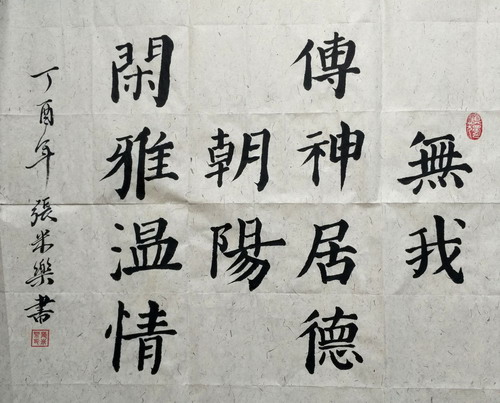 無我
傳神居德
朝陽
閑雅温情
丁酉年張米樂書